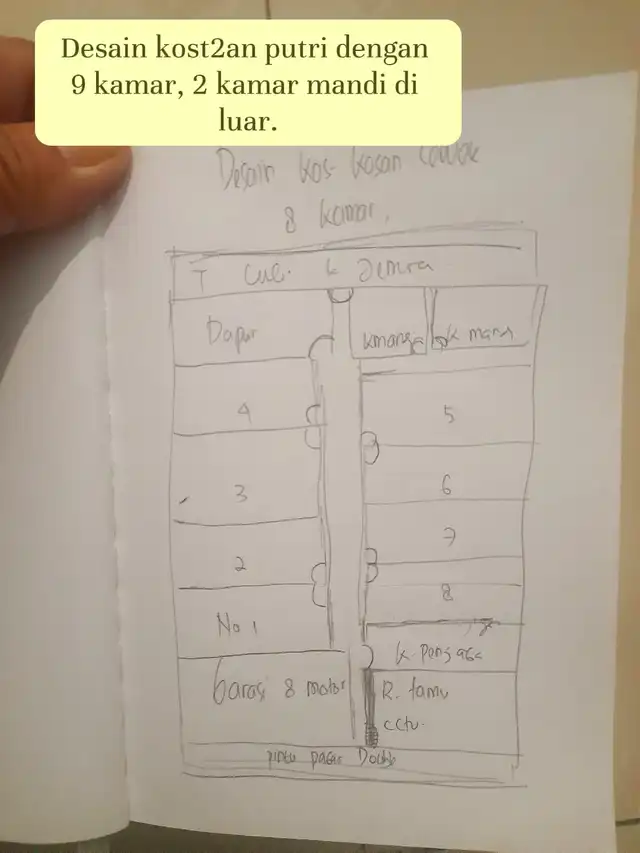 Desain kost2an putri dengan
9 kamar, 2 kamar mandi di
luar.
Desain kos-kosan cowok
8 kamar,
T cuci & Jemura
Dapur
kmand
k mand
4
5
3
6
7
2
8
No 1
K. Penjaga
Garasi 8 motor
R. tamu
cctv.
pintu pagar Double